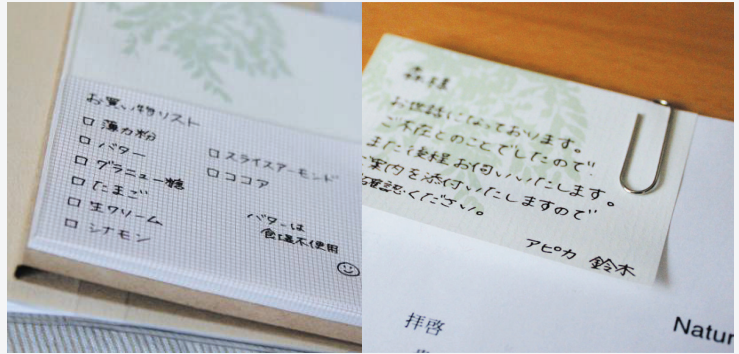 お買い物リスト
□ 薄力粉
□ バター
□ グラニュー糖
□ たまご
□ 生クリーム
□ シナモン
□ スライスアーモンド
□ ココア
バターは
食塩不使用
森様
お世話になっております。
ご不在とのことでしたので
また後程お伺いいたします。
ご案内を添付いたしますので
確認ください。
アピカ 鈴木
拝啓
Natur